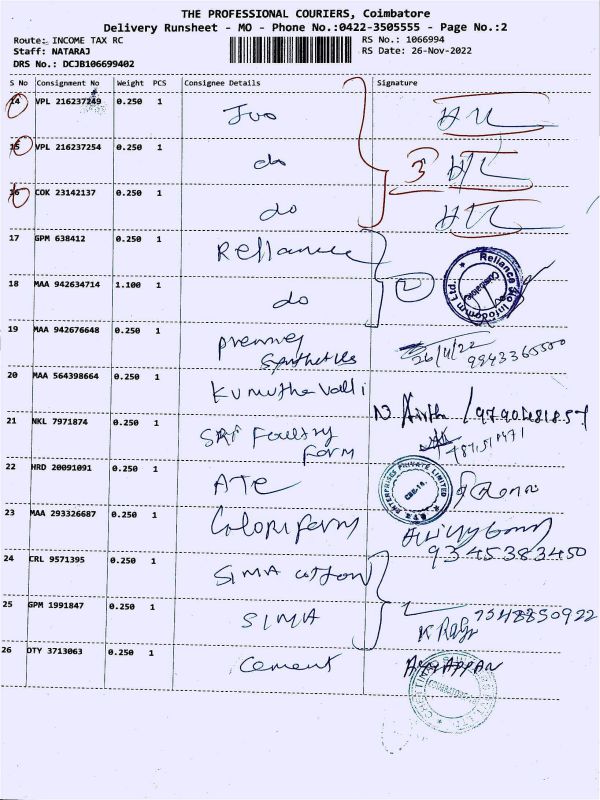 THE PROFESSIONAL COURIERS, Coimbatore
Delivery Runsheet - MO - Phone No.:0422-3505555 - Page No.:2
Route: INCOME TAX RC
RS No.: 1066994
Staff: NATARAJ
RS Date: 26-Nov-2022
DRS No.: DCJB106699402
S No Consignment No Weight PCS Consignee Details Signature
14 VPL 216237249 0.250 1
15 VPL 216237254 0.250 1 do 3
16 COK 23142137 0.250 1 do
17 GPM 638412 0.250 1 Reliance
18 MAA 942634714 1.100 1 do Reliance Jio Infocomm Ltd.
19 MAA 942676648 0.250 1
Synthetics 26/11/22 9943365500
20 MAA 564398664 0.250 1 Kumutha valli
21 NKL 7971874 0.250 1 SRI Poultry
Farm
22 HRD 20091091 0.250 1 ATE ENTERPRISES PRIVATE LIMITED
23 MAA 293326687 0.250 1
9345383450
24 CRL 9571395 0.250 1 SIMA cotton
25 GPM 1991847 0.250 1 SIMA 7548850922
K Raja
26 DTY 3713063 0.250 1 cement AYYAPPAN